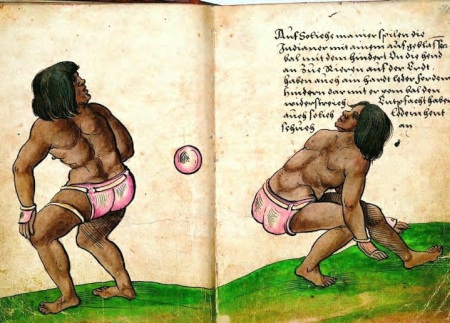 Auf Soliche manier spilen die
Indianer mit ainem aufgeblassen
bal mit dem hindert On die hend
an zue Rieren auf der Erdt
haben auch ain hardt leder for dem
hindern dar mit er vom bal den
widerstreich Entpfacht haben
auch solich Ledern hent
schuch an